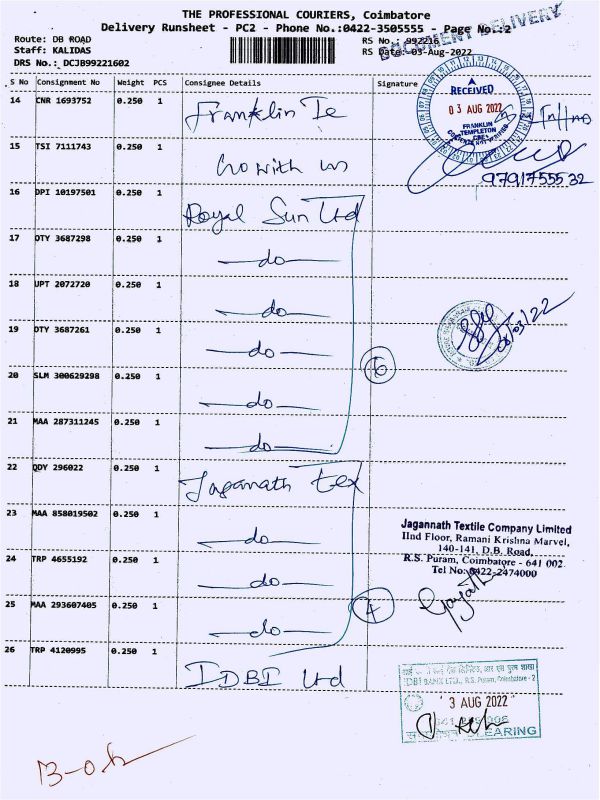 THE PROFESSIONAL COURIERS, Coimbatore
Delivery Runsheet - PC2 - Phone No.:0422-3505555 - Page No.:2
DOCUMENT DELIVERY
Route: DB ROAD
RS No.: 992216
Staff: KALIDAS
RS Date: 03-Aug-2022
DRS No.: DCJB99221602
S No Consignment No Weight PCS Consignee Details Signature
14 CNR 1693752 0.250 1 Franklin Te
RECEIVED
03 AUG 2022
FRANKLIN
TEMPLETON
15 TSI 7111743 0.250 1
9791755532
16 DPI 10197501 0.250 1 Royal Sun Ltd
17 DTY 3687298 0.250 1 —do—
18 UPT 2072720 0.250 1 —do—
19 DTY 3687261 0.250 1 —do—
6
20 SLM 300629298 0.250 1 —do—
21 MAA 287311245 0.250 1 —do—
22 QDY 296022 0.250 1 Jaganath tex
23 MAA 858019502 0.250 1 —do—
Jagannath Textile Company Limited
IInd Floor, Ramani Krishna Marvel,
140-141, D.B. Road,
R.S. Puram, Coimbatore - 641 002
Tel No: 0422-2474000
24 TRP 4655192 0.250 1 —do—
25 MAA 293607405 0.250 1 —do—
4
26 TRP 4120995 0.250 1 IDBI Ltd
IDBI BANK LTD., R.S. Puram, Coimbatore - 2
3 AUG 2022
CLEARING